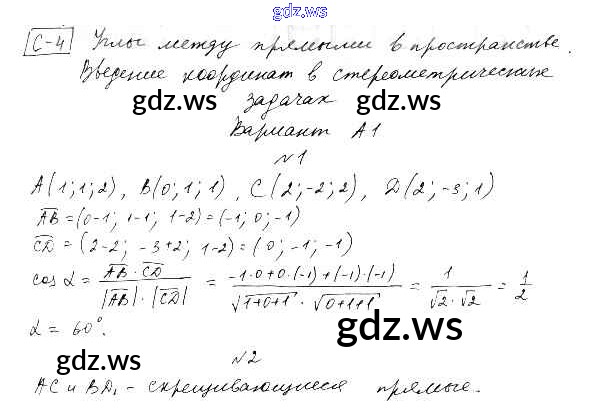 gdz.ws
С-4 Углы между прямыми в пространстве.
Введение координат в стереометрических
gdz.ws задачах gdz.ws
Вариант А1
№1
A(1;1;2), B(0;1;1), C(2;-2;2), D(2;-3;1)
AB = (0-1; 1-1; 1-2) = (-1; 0; -1)
CD = (2-2; -3+2; 1-2) = (0; -1; -1)
cos α = AB · CD / |AB| · |CD| = -1·0+0·(-1)+(-1)·(-1) / √1+0+1 · √0+1+1 = 1 / √2 · √2 = 1/2
α = 60°. gdz.ws
№2
AC и BD₁ - скрещивающиеся прямые.
gdz.ws